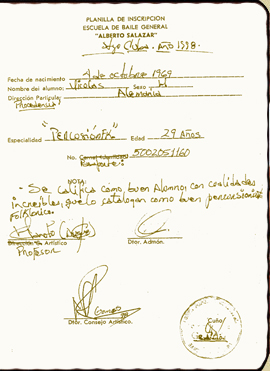 PLANILLA DE INSCRIPCION
ESCUELA DE BAILE GENERAL
"ALBERTO SALAZAR"
Stgo Cuba. Año 1998.
Fecha de nacimiento 4 de octubre 1969
Nombre del alumno: Nicolas Sexo M
Dirección Particular Alemania
Procedencia:
Especialidad "Percusión FK" Edad 29 Años
No. Carnet Identidad 5002051160
Pasaporte:
NOTA:
- Se califica como buen Alumno, con cualidades
increibles, que lo catalogan como buen percusionista
Folklórico.
Director Artístico
Profesor
Dtor. Admón.
Dtor. Consejo Artístico.
Cuño